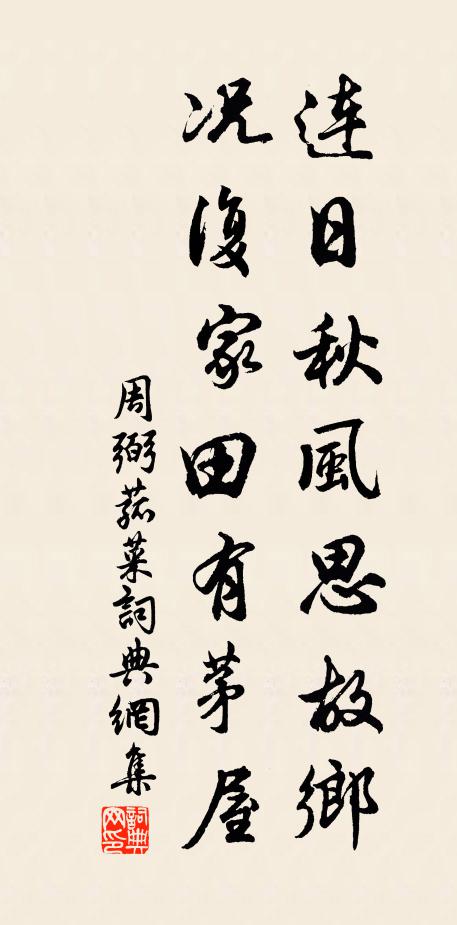 連日秋風思故鄉
況復家田有茅屋
周弼菰菜詞典網集
詞典网印